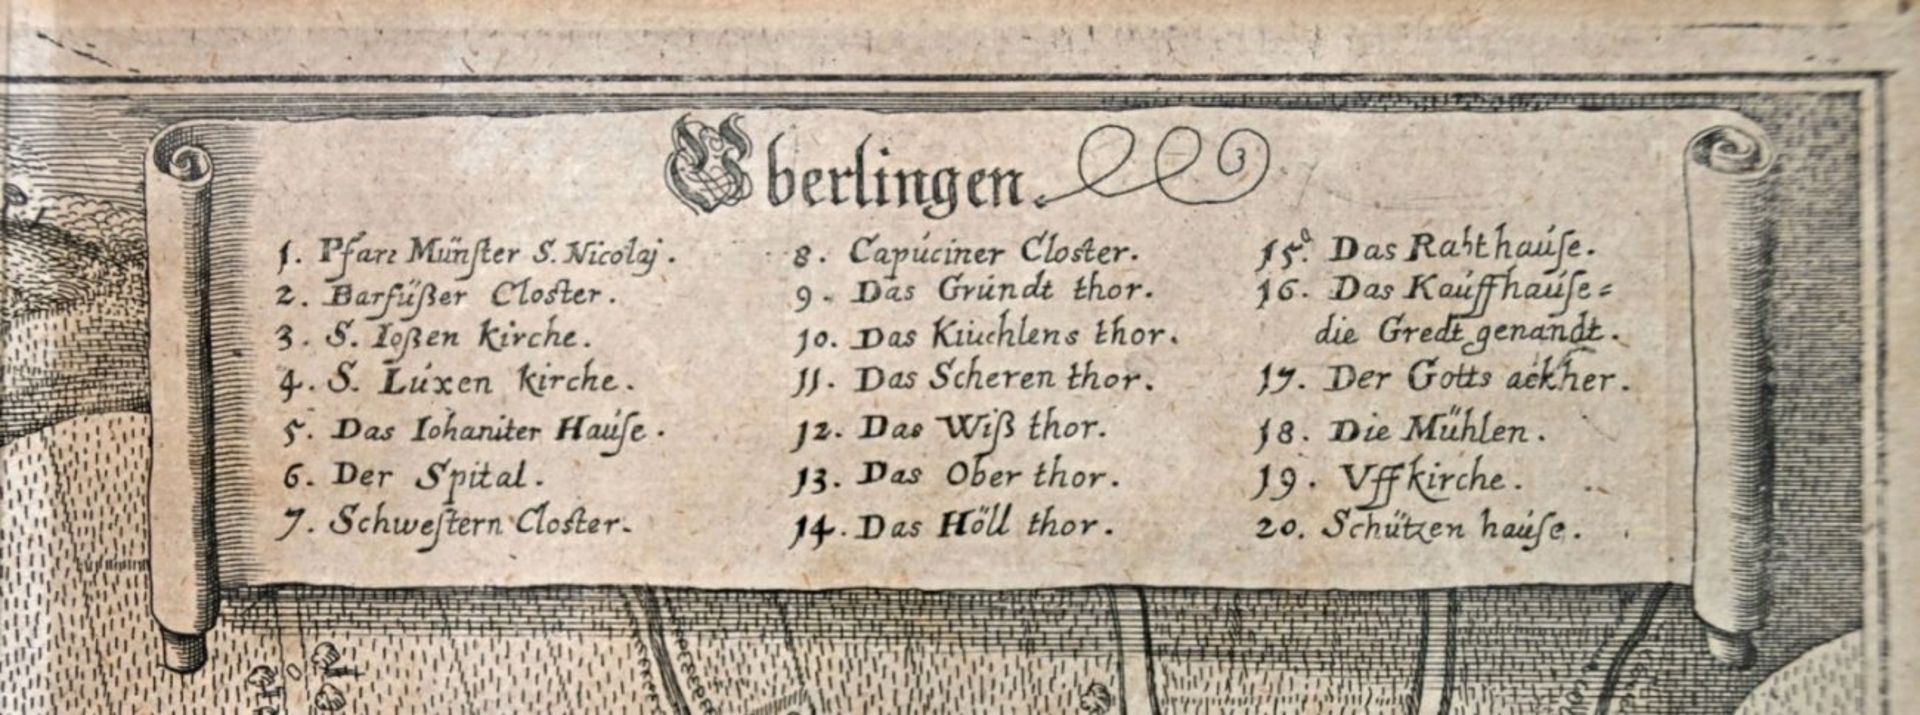 Überlingen.
1. Pfarr Münster S. Nicolaj.
2. Barfüßer Closter.
3. S. Ioßen kirche.
4. S. Lúxen kirche.
5. Das Iohaniter Haúse.
6. Der Spital.
7. Schwestern Closter.
8. Capúciner Closter.
9. Das Gründt thor.
10. Das Kiuchlens thor.
11. Das Scheren thor.
12. Das Wiß thor.
13. Das Ober thor.
14. Das Höll thor.
15. Das Rahthaúse.
16. Das Kaúffhaúse=
die Gredt genandt.
17. Der Gotts ackher.
18. Die Mühlen.
19. Vffkirche.
20. Schützen haúse.